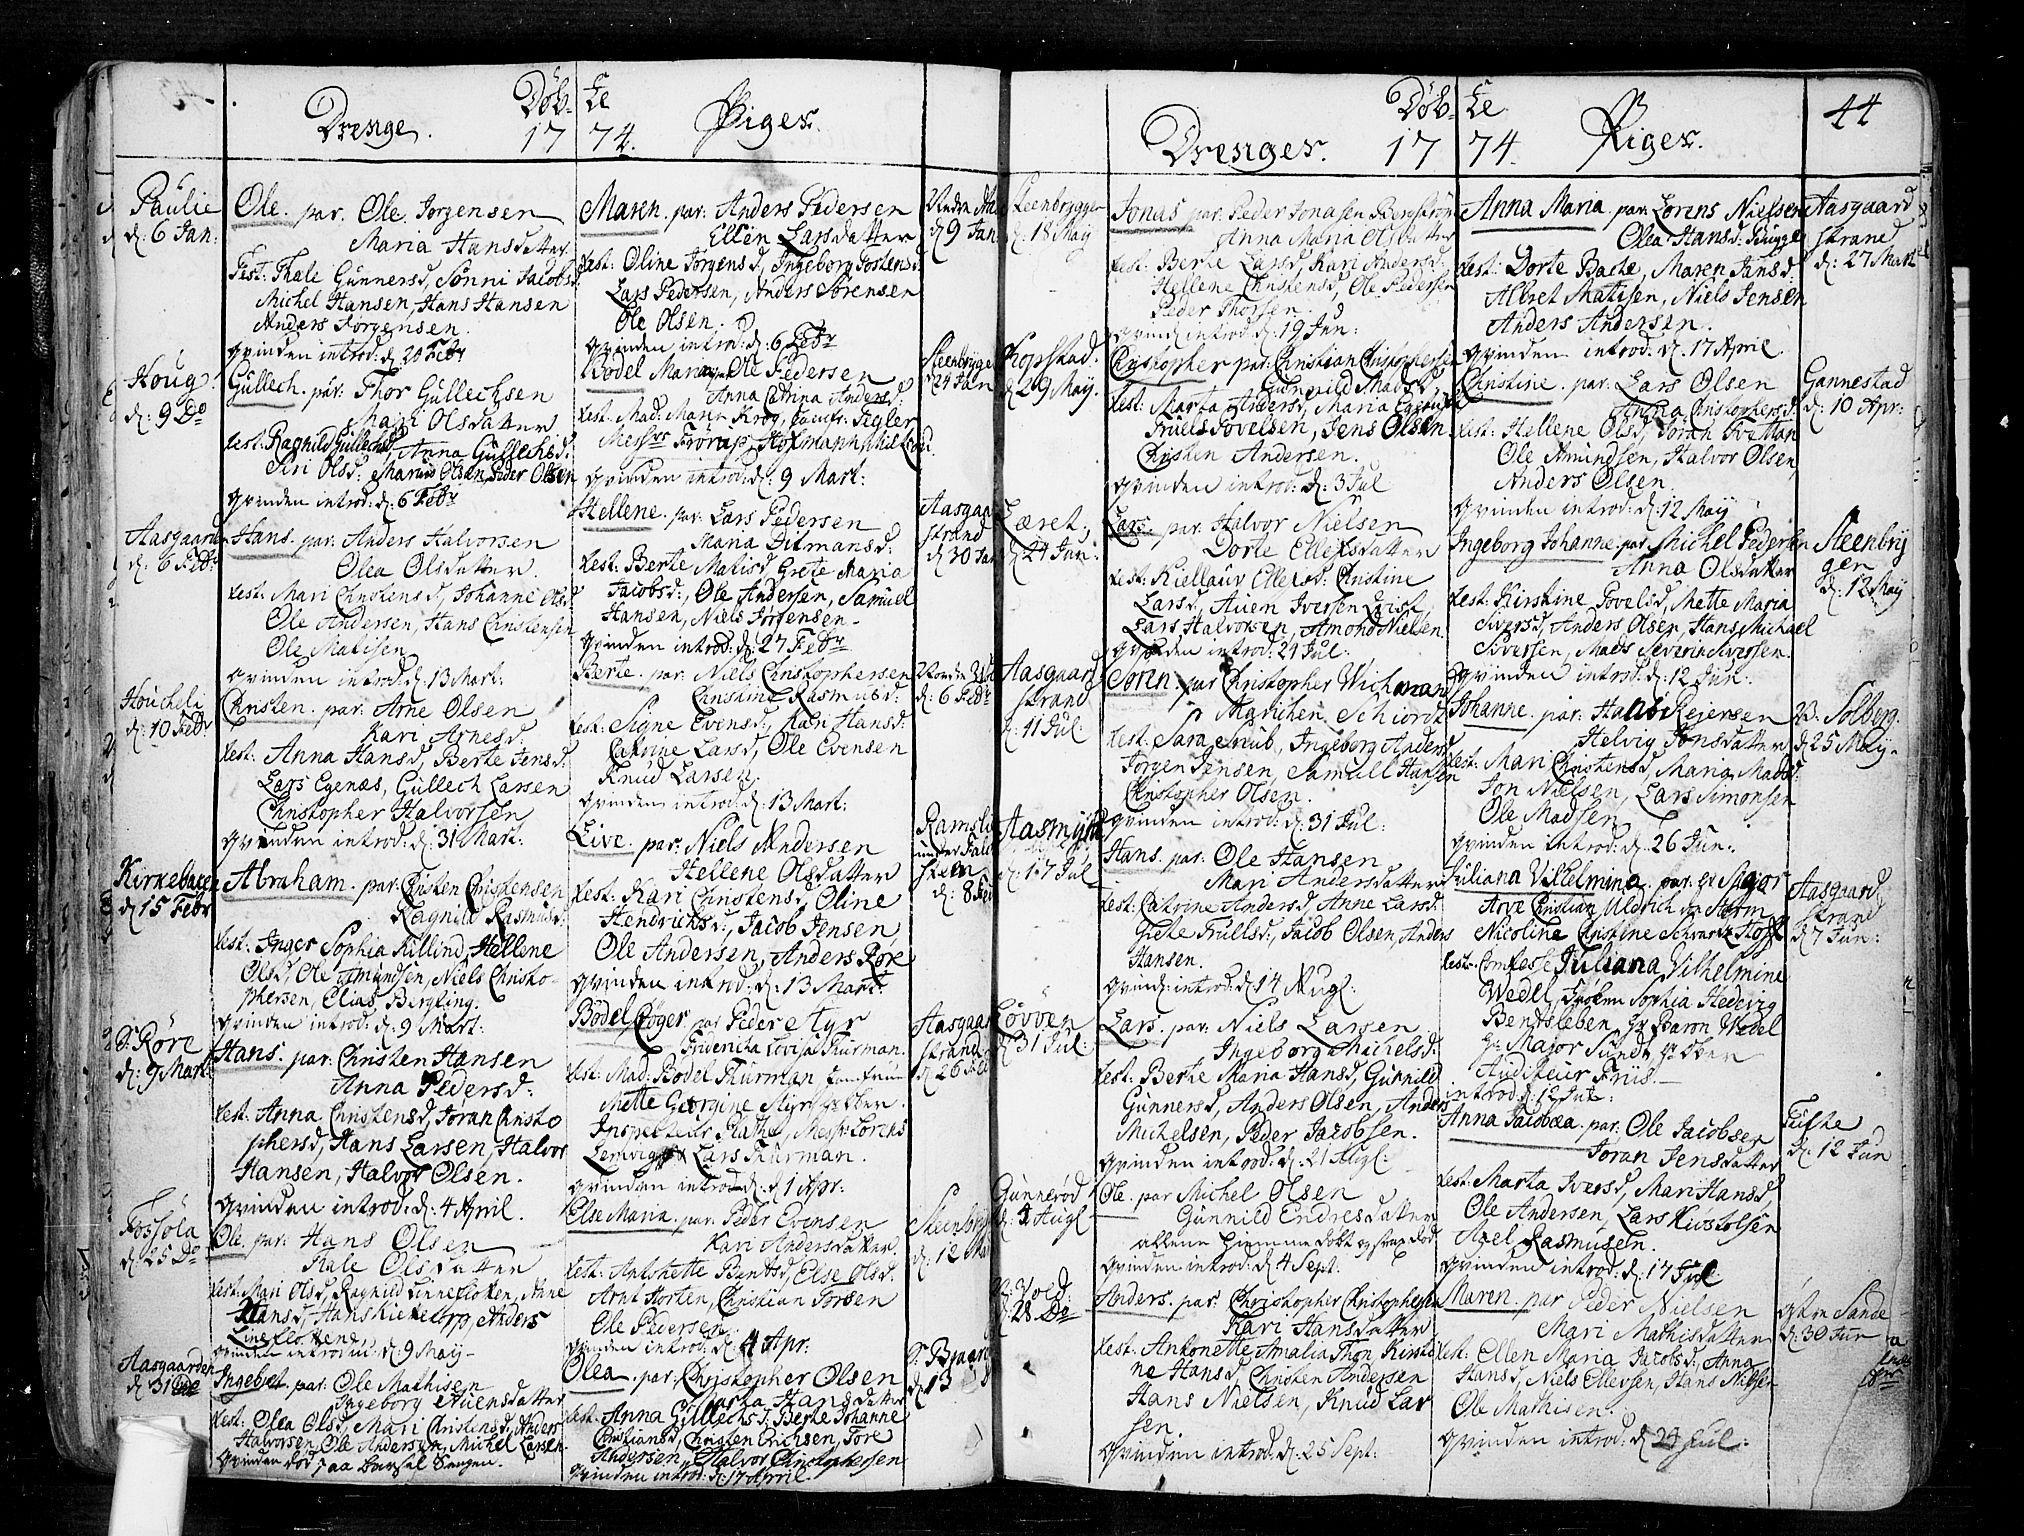 Døb-
Drenge.
17
Paulie
d: 6 Jan:
Ole. par. Ole Jørgensen
Maria Hansdatter
Test: Thale Gunnersd, Sønni Jacobsd
Michel Hansen, Hans Hansen
Anders Jørgensen.
qvinden introd: d: 20 Febr
Houg.
d: 9 Do
Gullech. par: Thor Gullechsen
Mari Olsdatter
test: Ragnild Gullechsd, Anna Gullechsd:
Siri Olsd: Marius Olsen, Peder Olsen
qvinden introd: d: 6 Febr
Aasgaarden
d: 6 Febr
Hans. par: Anders Halvorsen
Olea Olsdatter.
test: Mari Christensd, Johanne Olsd
Ole Andersen, Hans Christensen
Ole Matisen
qvinden introd: d: 13 Mart:
Houcheli
d: 10 Febr
Christen. par: Arne Olsen
Kari Arnesd.
test: Anna Hansd, Berte Jensd.
Lars Egenæs, Gullech Larsen
Christopher Halvorsen
qvinden introd: d: 31 Mart:
Kirkebacken
d 15 Febr
Abraham. par: Christen Christensen
Ragnild Rasmusd:
test: Inger Sophia Killind, Hellene
Olsd, Ole Amundsen, Niels Christo-
phersen, Elias Bergling.
qvinden introd: d: 9 Mart:
S: Røre
d: 9 Mart:
Hans. par: Christen Hansen
Anna Pedersd:
test: Anna Christensd, Joran Christo
phersd, Hans Larsen, Halvor
Hansen, Halvor Olsen.
qvinden introd: d: 4 April.
Fossola
d: 25 Do
Ole. par: Hans Olsen
Kale Olsdatter
test: Mari Olsd, Ragnild Linnesloken, Anne
Hansd, Hans Kicketorp, Anders
Linneslockene
qvinden introd: d: 9 Maij
Aasgaarden
d: 31
Ingebret. par: Ole Mathisen
Ingeborg Evensdatter
test: Olea Olsd, Mari Christensd, Anders
Halvorsen, Ole Andersen, Michel Larsen
qvinden død paa barsel Sengen.
te
74. Piger.
Maren. par: Anders Pedersen
Ellen Larsdatter
d 9 Jan
test: Oline Jørgensd, Ingeborg Jostensd
Lars Pedersen, Anders Sørensen
Ole Olsen.
qvinden introd: d: 6 Febr
Bodel Maria. Ole Pedersen
Anna Cathrina Andersd:
Steenbrygge
d 24 Jan
test: Mad: Mane Krog, Jomfr: Tegler
Messrs Frørup, Hofmann,
qvinden introd: d: 9 Mart:
Hellene. par: Lars Pedersen
Maria Ditmansd:
Aasgaar
strand
d: 30 Jan
test: Berte Matisd, Grete Maria
Jacobsd:, Ole Andersen, Samuel
Hansen, Niels Jørgensen
qvinden introd: d: 27 Febr
Berte. par: Niels Christophersen
Christine Rasmusd:
d: 6 Febr
test: Signe Evensd:, Kari Hansd:
Catrine Larsd, Ole Evensen
Knud Larsen.
qvinden introd: d: 13 Mart:
Live. par: Niels Andersen
Hellene Olsdatter
d: 8 Feb
test: Kari Christensd, Oline
Hendrichsd:, Jacob Jensen,
Ole Andersen, Anders Røre
qvinden introd: d: 13 Mart:
Bodel Røger. par Peder Styr
Friderica Lovisa Thurman.
Aasgaar
strand
d 26 Feb
test: Mad: Bodel Thurman, Jomfruen
Mette Georgine Styr, hr Ober
Inspecteur Plathe, Messr: Lorens
Lemvig, Lars Thurman.
qvinden introd: d: 1 Apr:
Else Maria. par: Peder Evensen
Kari Andersdatter.
Steenbryg
d: 12 Mar
test: Antonette Bentsd, Else Olsd.
Arnt Horten, Christian Torsen
Ole Pedersen
qvinden introd: d: 4 Apr:
Olea. par: Christopher Olsen
Marta Hansdatter
d: 13
test: Anna Gullechsd: Berte Johanne
Christiansd, Christen Erichsen, Tore
Andersen, Halvor Christophersen
qvinden introd: d: 17 April
Døb-
Drenger. 17
Steenbryggen
d: 18 Maij
Jonas par: Peder Jonasen Bergstrøm
Anna Maria Olsdatter
test: Berte Larsd, Kari Andersd
Hellene Christensd, Ole Pedersen
Peder Thorsen.
qvinden introd: d: 19 Jun:
Kopstad.
d: 29 Maij.
Christopher par: Christian Christophersen
Gunnild Madsd:
test: Marta Andersd, Maria
Truels Povelsen, Jens Olsen
Christen Andersen.
qvinden introd: d: 3 Jul
Læret.
d: 24 Jun:
Lars. par: Halvor Nielsen
Dorte Ellefsdatter
test: Kiellaug Ellefsd: Christine
Larsd, Auen Iversen Qvist,
Lars Halvorsen, Amond Nielsen.
qvinden introd: 21 Jul:
Aasgaard
strand
d: 11 Jul:
Søren. par Christopher Wichman
Marichen Schiordt
test: Sara Snub, Ingeborg Andersd:
Jørgen Jensen, Samuell Hansen
Christopher Olsen.
qvinden introd: d: 31 Jul:
d: 17 Jul
Hans. par: Ole Hansen
Mari Andersdatter
test: Catrine Andersd, Anne Larsd
Grete Trulsd., Jacob Olsen, Anders
Hansen.
qvind: introd: d 14 Augl:
Løvven
d: 31 Jul:
Lars. par: Niels Larsen
Ingeborg Michelsd:
test: Berte Maria Hansd, Gunnild
Gunnersd, Anders Olsen, Anders
Michelsen, Peder Jacobsen.
qvinden introd: d: 21 Augl:
Gunnerød
d: 1 Augl
Ole. par Michel Olsen
Gunnild Endresdatter
allene hiemmedøbt og strax død.
qvinden introd: d: 4 Sept:
d: 28 Do
Anders. par: Christopher Christophersen
Kari Hansdatter
test: Antonette Amalia Thon, Kirsti
ne Hansd, Christen Andersen
Hans Nielsen, Knud Lar
sen.
qvinden introd: d: 25 Sept:
te
74. Piger.
44
Anna Maria. par: Lorens Nielsen
Olea Hansd: Bugge
Aasgaard
strand
d: 27 Mart
test: Dorte Basse, Maren Jansd.
Albret Matisen, Niels Jensen
Anders Andersen.
qvinden introd. d. 17 April
Christine. par: Lars Olsen
Anna Christophersd
Gannestad
d: 10 Apr:
test: Hellene Olsd, Joran Tvettan
Ole Amundsen, Halvor Olsen,
Anders Olsen.
qvinden introd: d. 12 Maij
Ingeborg Johanne. par: Michel Pedersen
Anna Olsdatter
Steenbryg
gen
d: 12 Maij
test: Kirstine Povelsd, Mette Maria
Siversd, Anders Olsen, Hans Michael
Siversen, Mads Severin Siversen.
qvinden introd: d: 12 Jun:
Johanne. par: Reiersen
Helvig Jonsdatter
Solberg.
d: 25 Maij
test: Mari Christensd, Maria Madsd:
Jon Nielsen, Lars Simonsen
Ole Madsen.
qvinden introd: d. 26 Jun:
Juliana Vilhelmina. par: hr Major
Arve Christian Uldrich
Nicoline Christine Schwartz
Aasgaard
strand
d 7 Jun:
test: Comtesse Juliana Vilhelmine
Wedel, Frøken Sophia Hedevig
Bentsleben, hr Baron Wedel
hr Major Sundt, hr Ober
Auditeur Friis.
introd: d: 12 Jul:
Anna Jacobæa. par: Ole Jacobsen
Joran Jensdatter
Tufte
d: 12 Jun
test: Marta Iversd, Mari Hansd,
Ole Andersen, Lars Kiøstolsen
Axel Rasmusen.
qvinden introd: d: 17 Jul
Maren. par Peder Nielsen
Mari Mathisdatter
Sande
d: 30 Jun
test: Ellen Maria Jacobsd, Anna
Hansd, Niels Ellevsen, Hans Nielsen
Ole Mathisen.
qvinden introd: d 24 Jul: